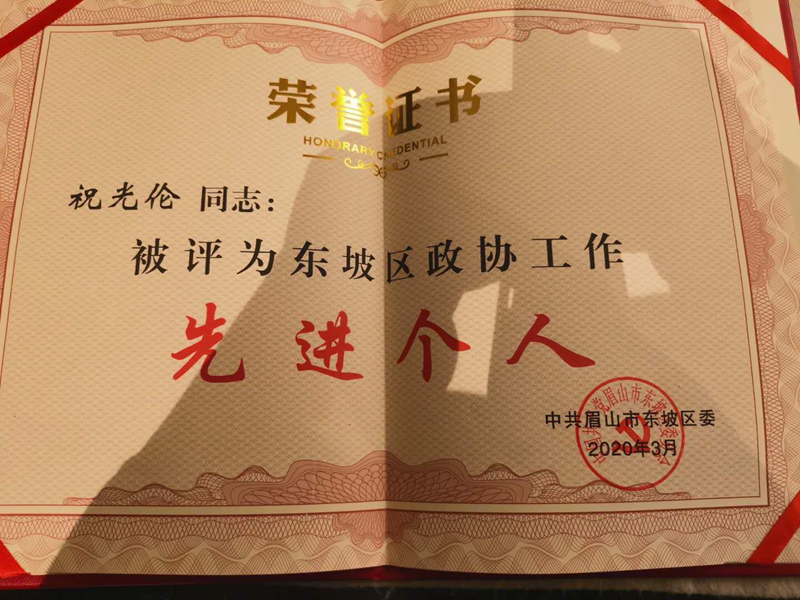 荣誉证书
HONORARY CREDENTIAL
祝光伦 同志：
被评为东坡区政协工作
先进个人
中共眉山市东坡区委
2020年3月